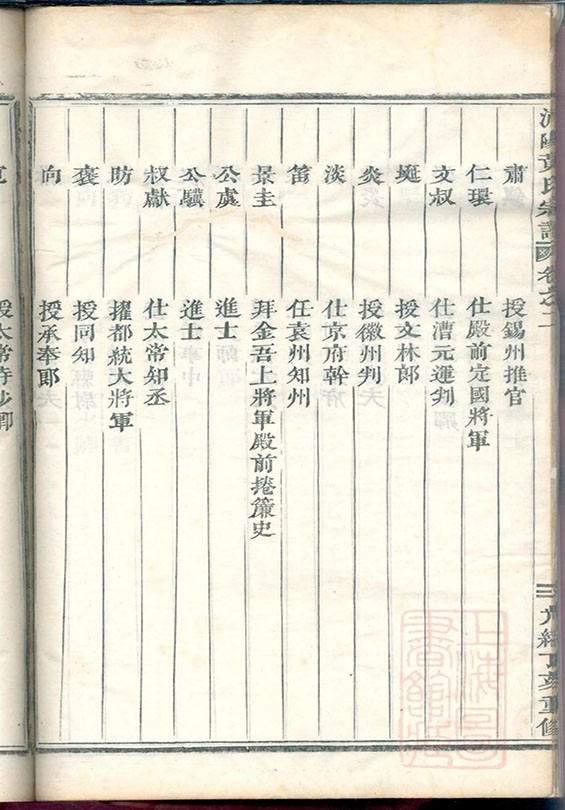 黃氏宗譜 卷之二
三 光緒丁亥重修
肅 授錫州推官
仁環 仕殿前定國將軍
文叔 仕漕元運判
授文林郎
炎 授徽州判
淡 仕京府幹
任袁州知州
景圭 拜金吾上將軍殿前捲簾史
公虞 進士
公驥 進士
叔獻 仕太常知丞
昉 擢都統大將軍
袞 授同知
向 授承奉郎
授太常寺少卿
上海圖書館藏